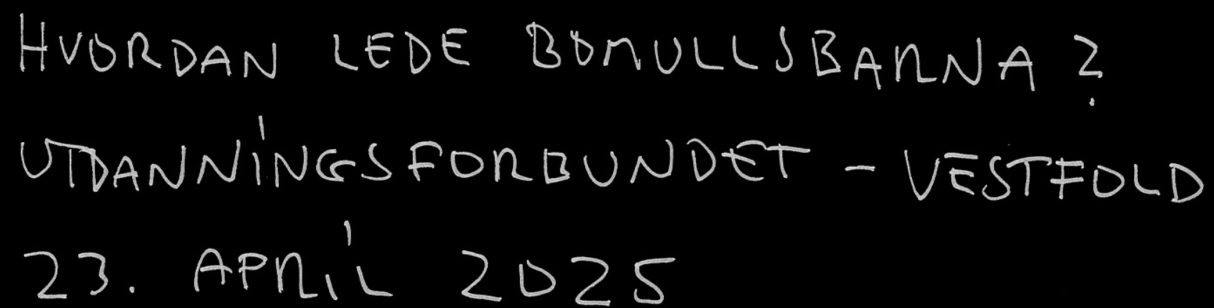 HVORDAN LEDE BOMULLSBARNA?
UTDANNINGSFORBUNDET - VESTFOLD
23. APRIL 2025